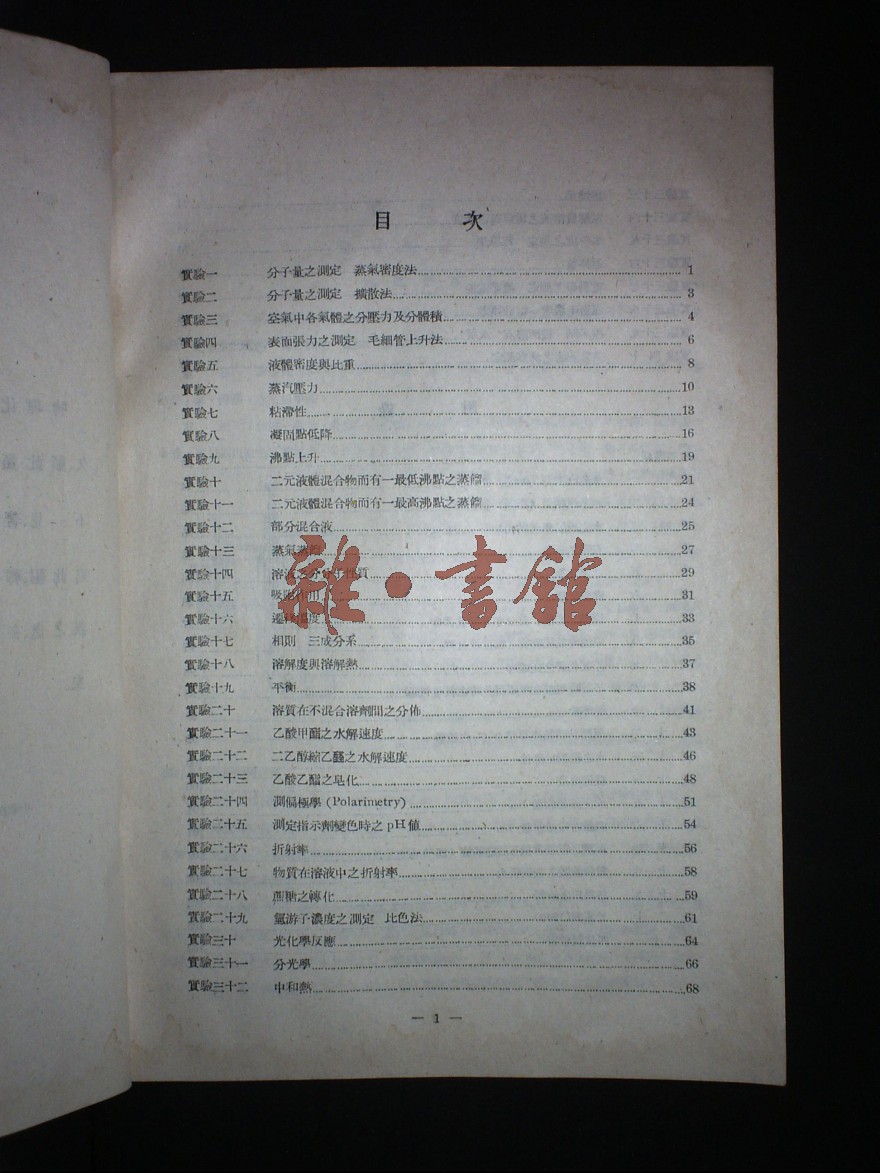 目 次
實驗一 分子量之測定 蒸氣密度法 1
實驗二 分子量之測定 擴散法 3
實驗三 空氣中各氣體之分壓力及分體積 4
實驗四 表面張力之測定 毛細管上升法 6
實驗五 液體密度與比重 8
實驗六 蒸汽壓力 10
實驗七 粘滯性 13
實驗八 凝固點低降 16
實驗九 沸點上升 19
實驗十 二元液體混合物而有一最低沸點之蒸餾 21
實驗十一 二元液體混合物而有一最高沸點之蒸餾 24
實驗十二 部分混合液 25
實驗十三 蒸氣蒸餾 27
實驗十四 溶液之分 性質 29
實驗十五 吸附作用 31
實驗十六 遷移溫度 33
雜·書舘
實驗十七 相則 三成分系 35
實驗十八 溶解度與溶解熱 37
實驗十九 平衡 38
實驗二十 溶質在不混合溶劑間之分佈 41
實驗二十一 乙酸甲酯之水解速度 43
實驗二十二 二乙醇縮乙醛之水解速度 46
實驗二十三 乙酸乙酯之皂化 48
實驗二十四 測偏極學 (Polarimetry) 51
實驗二十五 測定指示劑變色時之 pH 値 54
實驗二十六 折射率 56
實驗二十七 物質在溶液中之折射率 58
實驗二十八 蔗糖之轉化 59
實驗二十九 氫游子濃度之測定 比色法 61
實驗三十 光化學反應 64
實驗三十一 分光學 66
實驗三十二 中和熱 68
— 1 —